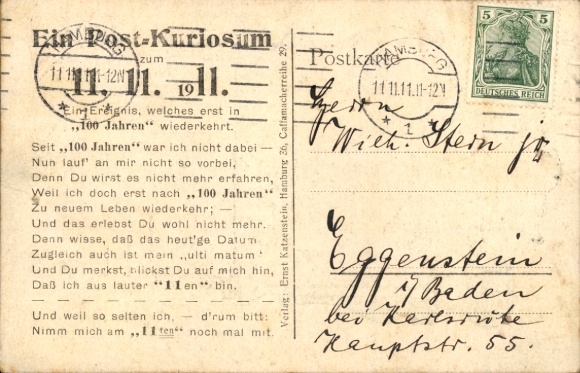 Ein Post-Kuriosum
zum
11. 11. 1911.
Ein Ereignis, welches erst in
„100 Jahren" wiederkehrt.
Seit „100 Jahren" war ich nicht dabei —
Nun lauf' an mir nicht so vorbei,
Denn Du wirst es nicht mehr erfahren,
Weil ich doch erst nach „100 Jahren"
Zu neuem Leben wiederkehr; —
Und das erlebst Du wohl nicht mehr.
Denn wisse, daß das heut'ge Datum
Zugleich auch ist mein „ulti matum"
Und Du merkst, blickst Du auf mich hin,
Daß ich aus lauter "11en" bin.
Und weil so selten ich, — d'rum bitt:
Nimm mich am „11ten" noch mal mit.
Verlag: Ernst Katzenstein, Hamburg 36, Caffamacherreihe 29.
Postkarte
HAMBURG
11.11.11.11-12N
* 1 *
HAMBURG
11.11.11.11-12N
* 1 *
5 5
DEUTSCHES REICH
Herrn
Wilh. Stern jr
Eggenstein
i/Baden
bei Karlsruhe
Hauptstr. 55.